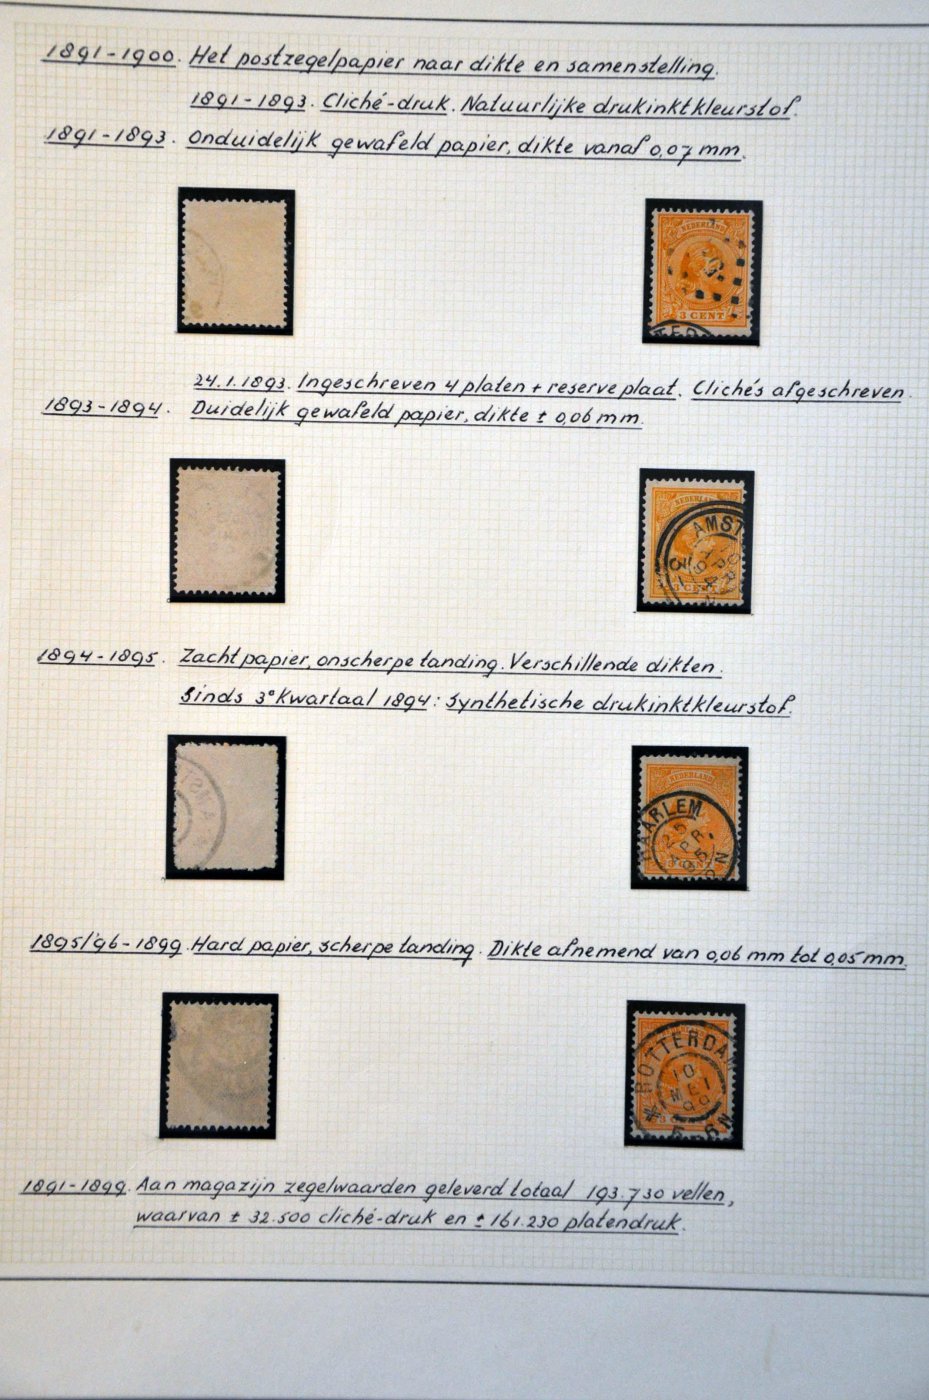 1891-1900. Het postzegelpapier naar dikte en samenstelling.
1891-1893. Cliché-druk. Natuurlijke drukinktkleurstof.
1891-1893. Onduidelijk gewafeld papier, dikte vanaf 0,07 mm.
NEDERLAND
3 CENT
24.1.1893. Ingeschreven 4 platen + reserve plaat. Cliché's afgeschreven.
1893-1894. Duidelijk gewafeld papier, dikte ± 0,06 mm.
NEDERLAND
AMST
3 CENT
1894-1895. Zacht papier, onscherpe tanding. Verschillende dikten.
Sinds 3e Kwartaal 1894: Synthetische drukinktkleurstof.
NEDERLAND
HAARLEM
25
APR
95
1895/'96-1899. Hard papier, scherpe tanding. Dikte afnemend van 0,06 mm tot 0,05 mm.
ROTTERDAM
10
MEI
99
3 CENT
5-6N
1891-1899. Aan magazijn zegelwaarden geleverd totaal 193.730 vellen,
waarvan ± 32.500 cliché-druk en ± 161.230 platendruk.